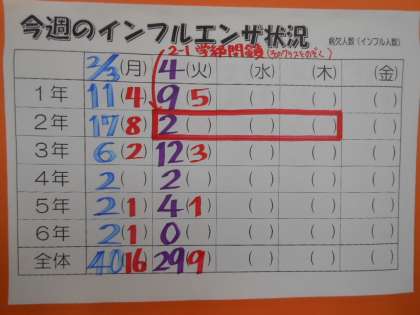 今週のインフルエンザ状況
病欠人数(インフル人数)
2-1 学級閉鎖(そのクラスをのぞく)
2/3(月) 4(火) (水) (木) (金)
1年 11(4) 9(5) ( ) ( ) ( )
2年 17(8) 2( ) ( ) ( ) ( )
3年 6(2) 12(3) ( ) ( ) ( )
4年 2( ) 2( ) ( ) ( ) ( )
5年 2(1) 4(1) ( ) ( ) ( )
6年 2(1) 0( ) ( ) ( ) ( )
全体 40(16) 29(9) ( ) ( ) ( )